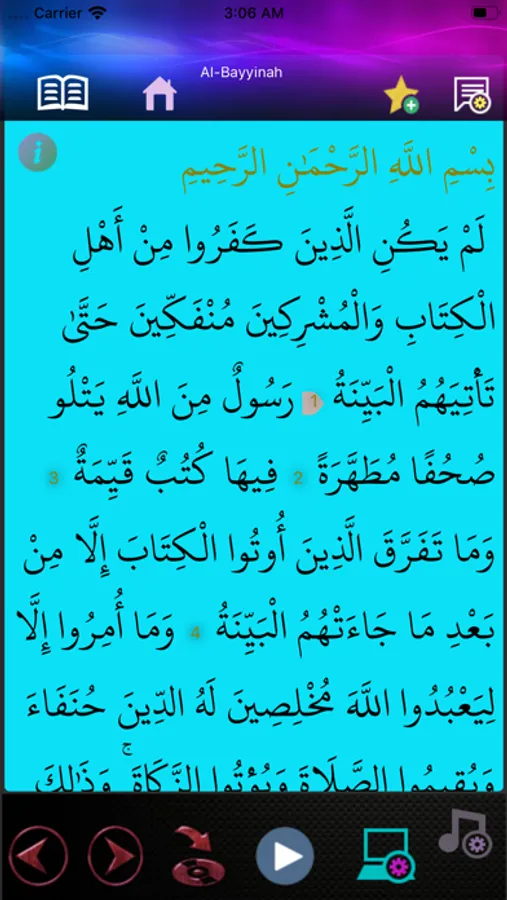 Carrier 3:06 AM
Al-Bayyinah
بِسْمِ اللَّهِ الرَّحْمَٰنِ الرَّحِيمِ
لَمْ يَكُنِ الَّذِينَ كَفَرُوا مِنْ أَهْلِ
الْكِتَابِ وَالْمُشْرِكِينَ مُنْفَكِّينَ حَتَّىٰ
تَأْتِيَهُمُ الْبَيِّنَةُ 1 رَسُولٌ مِنَ اللَّهِ يَتْلُو
صُحُفًا مُطَهَّرَةً 2 فِيهَا كُتُبٌ قَيِّمَةٌ 3
وَمَا تَفَرَّقَ الَّذِينَ أُوتُوا الْكِتَابَ إِلَّا مِنْ
بَعْدِ مَا جَاءَتْهُمُ الْبَيِّنَةُ 4 وَمَا أُمِرُوا إِلَّا
لِيَعْبُدُوا اللَّهَ مُخْلِصِينَ لَهُ الدِّينَ حُنَفَاءَ
وَيُقِيمُوا الصَّلَاةَ وَيُؤْتُوا الزَّكَاةَ ۚ وَذَٰلِكَ